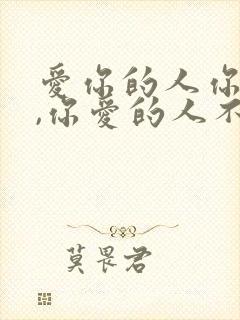 爱你的人你
,你爱的人不
莫畏君